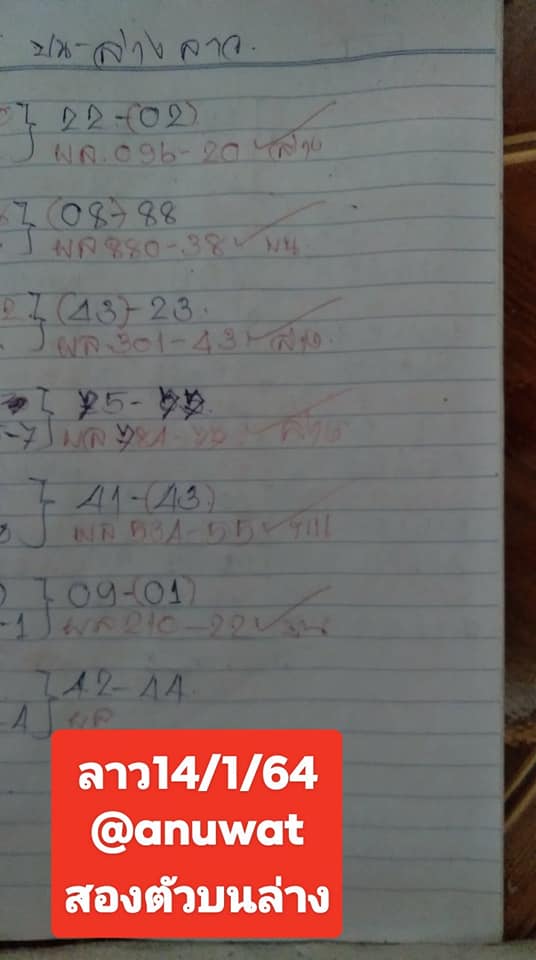 บน-ล่าง ลาว.
22-(02)
ผล.096-20 ล่าง
(08)-88
ผล 880-38 บน
2 (43)-23.
ผล.301-43 ล่าง.
75-
-7 ผล ล่าง
41-(43)
3 ผล 534-55
09-(01)
-1 ผล 210-22 บน
42-44.
-4 ผล
ลาว14/1/64
@anuwat
สองตัวบนล่าง